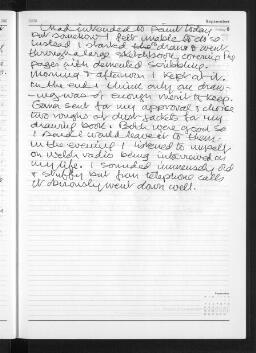 September
I had intended to paint today
but somehow I felt unable to do so
Instead I started to draw & went
through a large sketchbook covering its
pages with demented scribbling.
Morning & afternoon I kept at it
in the end I think only one draw-
ing was of enough merit to keep.
sent for my approval & choice
two roughs of dust-jackets for my
drawing book. Both were good so
I said I would leave it to them.
In the evening I listened to myself
on Welsh radio being interviewed on
my life. I sounded immensely old
& stuffy but from telephone calls
it obviously went down well.